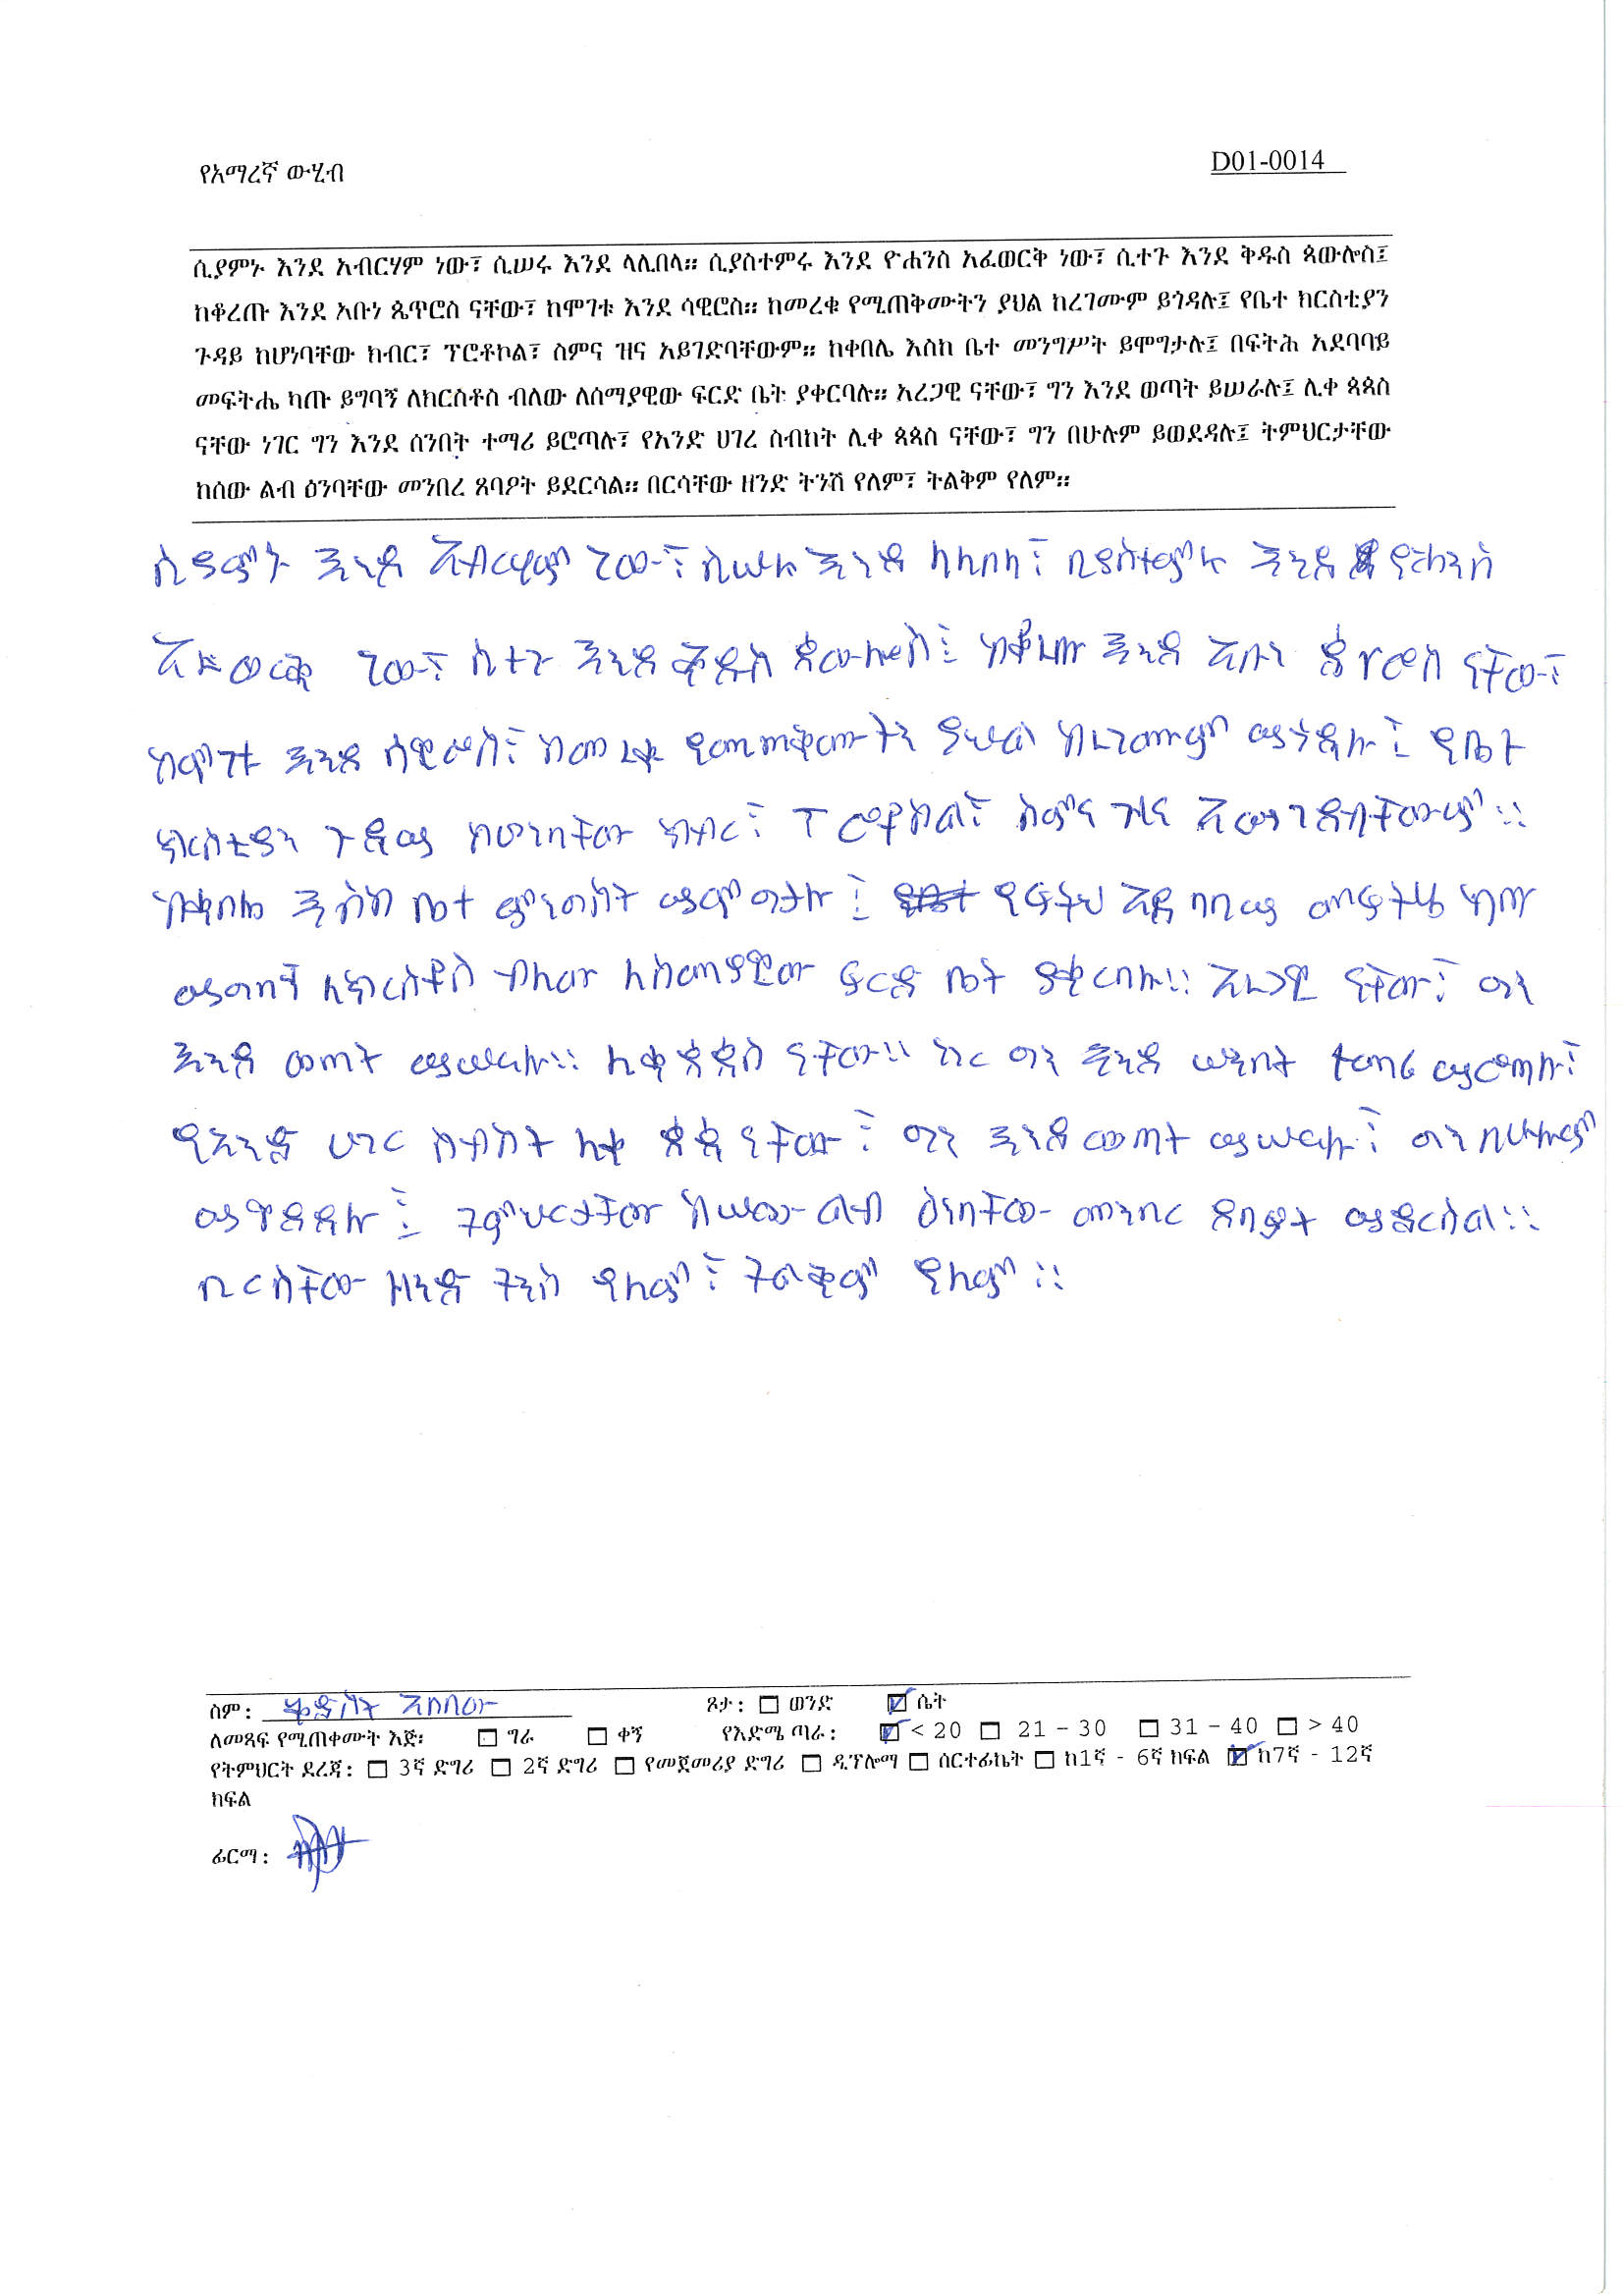 የአማረኛ ውሂብ
D01-0014
ሲያምኑ እንደ አብርሃም ነው፣ ሲሠሩ እንደ ላሊበላ። ሲያስተምሩ እንደ ዮሐንስ አፈወርቅ ነው፣ ሲተጉ እንደ ቅዱስ ጳውሎስ፤
ከቆረጡ እንደ አቡነ ጴጥሮስ ናቸው፣ ከሞገቱ እንደ ሳዊሮስ። ከመረቁ የሚጠቅሙትን ያህል ከረገሙም ይጎዳሉ፤ የቤተ ክርስቲያን
ጉዳይ ከሆነባቸው ክብር፣ ፕሮቶኮል፣ ስምና ዝና አይገድባቸውም። ከቀበሌ እስከ ቤተ መንግሥት ይሞግታሉ፤ በፍትሕ አደባባይ
መፍትሔ ካጡ ይግባኝ ለክርስቶስ ብለው ለሰማያዊው ፍርድ ቤት ያቀርባሉ። አረጋዊ ናቸው፣ ግን እንደ ወጣት ይሠራሉ፤ ሊቀ ጳጳስ
ናቸው ነገር ግን እንደ ሰንበት ተማሪ ይሮጣሉ፣ የአንድ ሀገረ ስብከት ሊቀ ጳጳስ ናቸው፣ ግን በሁሉም ይወደዳሉ፤ ትምህርታቸው
ከሰው ልብ ዕንባቸው መንበረ ጸባዖት ይደርሳል። በርሳቸው ዘንድ ትንሽ የለም፣ ትልቅም የለም።
ሲያምኑ እንደ አብርሃም ነው፣ ሲሠሩ እንደ ላሊበላ፣ ሲያስተምሩ እንደ ዮሐንስ
አፈወርቅ ነው፣ ሲተጉ እንደ ቅዱስ ጳውሎስ፤ ከቆረጡ እንደ አቡነ ጴጥሮስ ናቸው፣
ከሞገቱ እንደ ሳዊሮስ፣ ከመረቁ የሚጠቅሙትን ያህል ከረገሙም ይጎዳሉ፤ የቤተ
ክርስቲያን ጉዳይ ከሆነባቸው ክብር፣ ፕሮቶኮል፣ ስምና ዝና አይገድባቸውም።
ከቀበሌ እስከ ቤተ ምንግስት ይሞግታሉ፤ የፍትህ አደባባይ መፍትሄ ካጡ
ይግባኝ ለክርስቶስ ብለው ለስማያዊው ፍርድ ቤት ያቀርባሉ። አረጋዊ ናቸው፣ ግን
እንደ ወጣት ይሠራሉ። ሊቀ ጳጳስ ናቸው። ነገር ግን እንደ ሠንበት ተማሪ ይሮጣሉ፣
የአንድ ሀገር ስብከት ሊቀ ጳጳ ናቸው፣ ግን እንደ ወጣት ይሠራሉ፣ ግን በሁሉም
ይዋደዳሉ፤ ትምህርታቸው ከሠው ልብ ዕንባቸው መንበር ጸባዖት ይደርሳል።
በርሳቸው ዘንድ ትንስ የለም፣ ትልቅም የለም።
ስም: ቅድስት አበባው
ጾታ: ወንድ ሴት
ለመጻፍ የሚጠቀሙት እጅ፡ ግራ ቀኝ የእድሜ ጣራ: < 20 21 – 30 31 – 40 > 40
የትምህርት ደረጃ: 3ኛ ድግሪ 2ኛ ድግሪ የመጀመሪያ ድግሪ ዲፕሎማ ሰርተፊኬት ከ1ኛ - 6ኛ ክፍል ከ7ኛ - 12ኛ
ክፍል
ፊርማ: